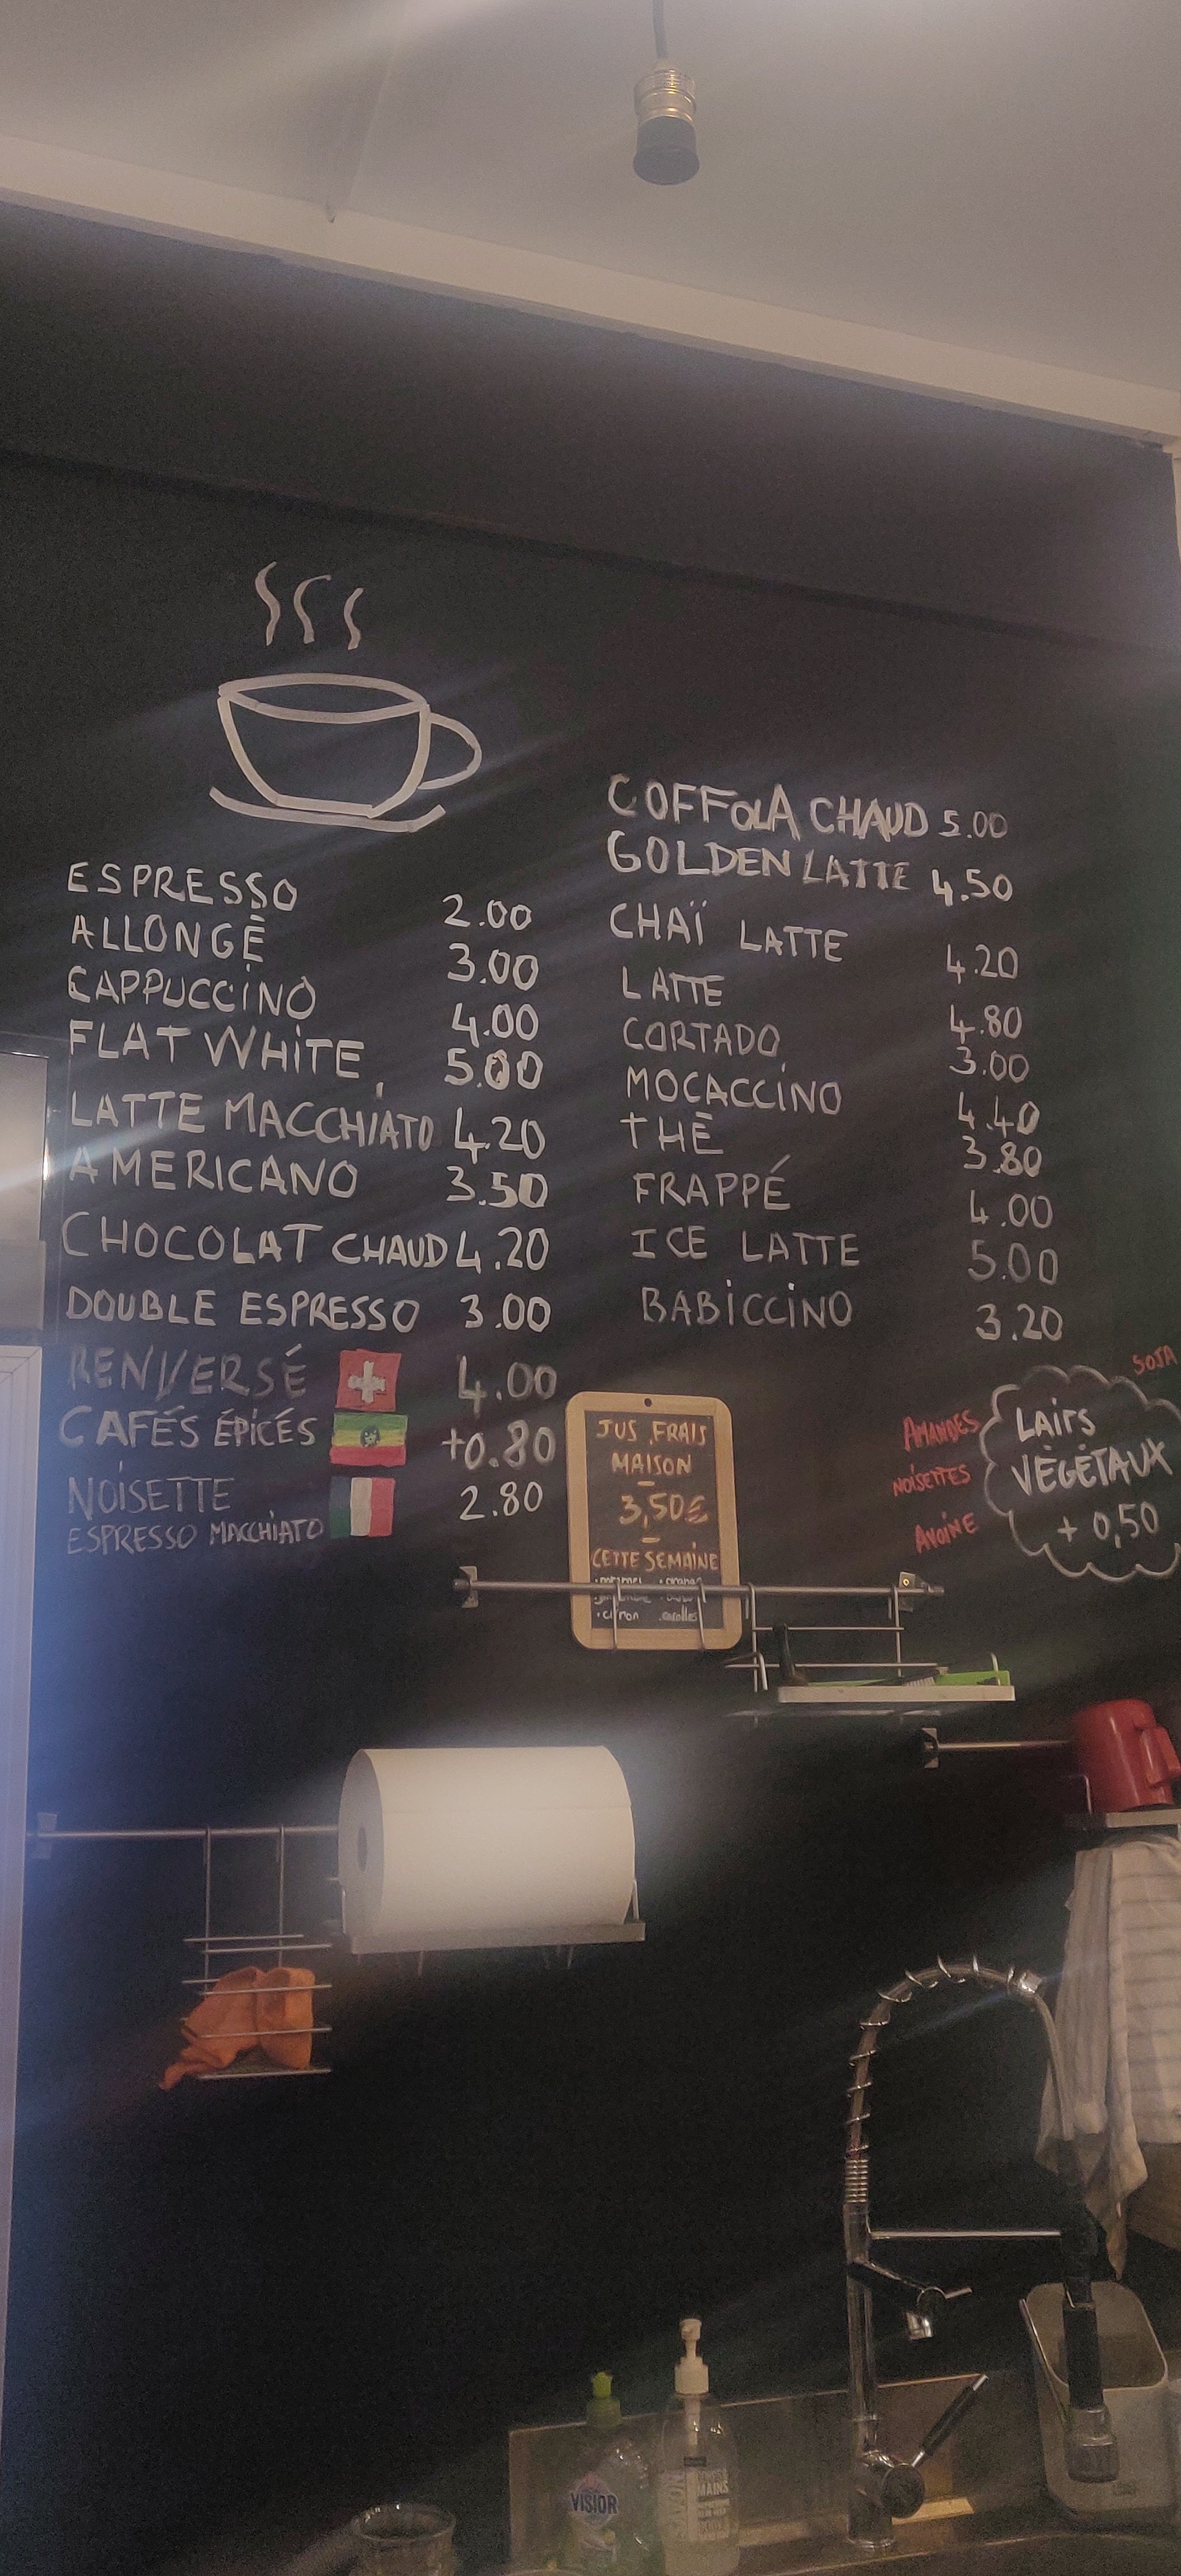 ESPRESSO 2.00
ALLONGÉ 3.00
CAPPUCCINO 4.00
FLAT WHITE 5.00
LATTE MACCHIATO 4.20
AMERICANO 3.50
CHOCOLAT CHAUD 4.20
DOUBLE ESPRESSO 3.00
RENVERSÉ 4.00
CAFÉS ÉPICÉS +0.80
NOISETTE 2.80
ESPRESSO MACCHIATO
COFFOLA CHAUD 5.00
GOLDEN LATTE 4.50
CHAÏ LATTE 4.20
LATTE 4.80
CORTADO 3.00
MOCACCINO 4.40
THÉ 3.80
FRAPPÉ 4.00
ICE LATTE 5.00
BABICCINO 3.20
JUS FRAIS
MAISON
3,50€
CETTE SEMAINE
citron
SOJA
AMANDES
NOISETTES
AVOINE
LAITS
VÉGÉTAUX
+ 0,50
VISIOR
SAVON
MAINS